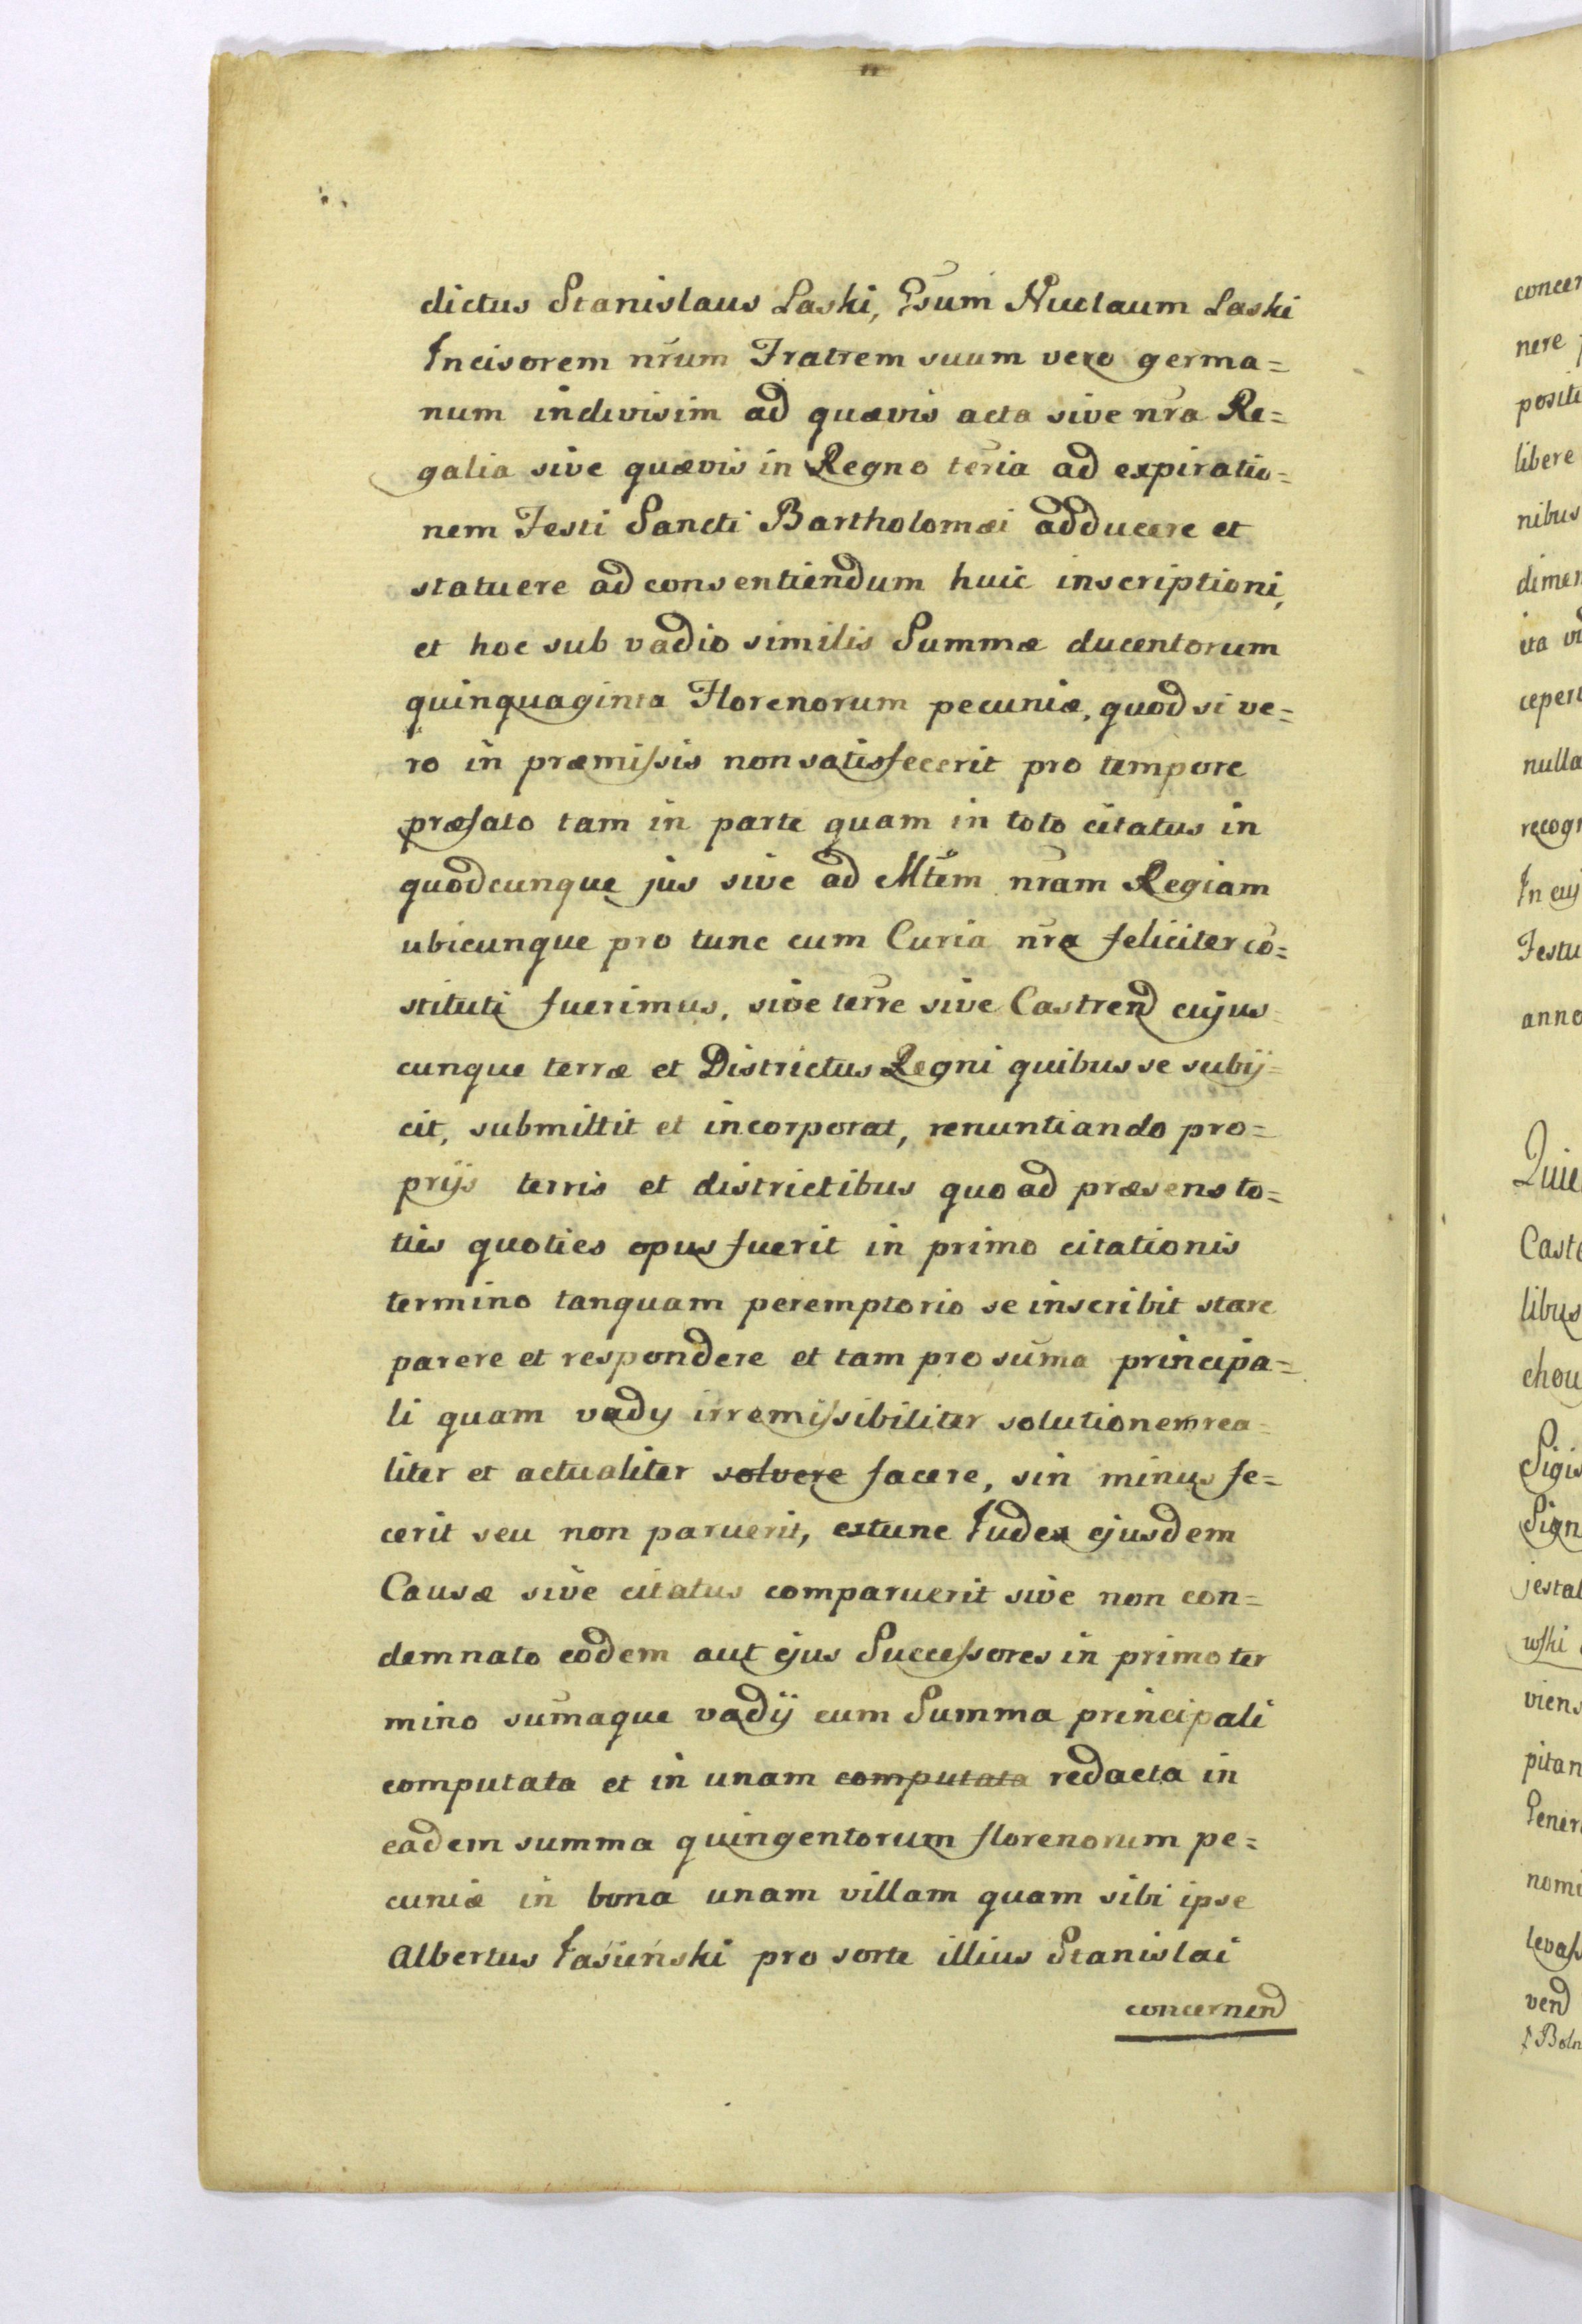 dictus Stanislaus Laski, Gsum Nuclaum Laski
Incisorem nrum Fratrem suum vero germa=
num indivisim ad quævis acta sive nra Re=
galia sive quævis in Regno terria ad expiratio=
nem Festi Sancti Bartholomæi adducere et
statuere ad consentiendum huic inscriptioni,
et hoc sub vadio similis Summæ ducentorum
quinquaginta Florenorum pecuniæ, quod si ve=
ro in præmissis non satisfecerit pro tempore
præfato tam in parte quam in toto citatus in
quodcunque jus sive ad Mtem nram Regiam
ubicunque pro tunc cum Curia nra feliciter co=
stituti fuerimus, sive terre sive Castrend cujus=
cunque terræ et Districtus Regni quibus se subij=
cit, submittit et incorporat, renuntiando pro=
prijs terris et districtibus quo ad præsens to=
ties quoties opus fuerit in primo citationis
termino tanquam peremptorio se inscribit stare
parere et respondere et tam pro suma principa=
li quam vady irremissibiliter solutionem rea=
liter et actualiter solvere facere, sin minus fe=
cerit seu non paruerit, extunc Iudex ejusdem
Causæ sive citatus comparuerit sive non con=
demnato eodem aut ejus Successores in primo ter
mino sumaque vadij cum Summa principali
computata et in unam computata redacta in
eadem summa quingentorum florenorum pe=
cuniæ in bona unam villam quam sibi ipse
Albertus Iasieński pro sorte illius Stanislai
concernend
concer
nere
positi
libere
nibus
dimen
ita
ceper
nulla
recogn
In cuj
Festu
anno
Quie
Cast
libus
chou
Sigis
Sign
jestat
wski
viens
pitan
Gener
nomi
levass
vend